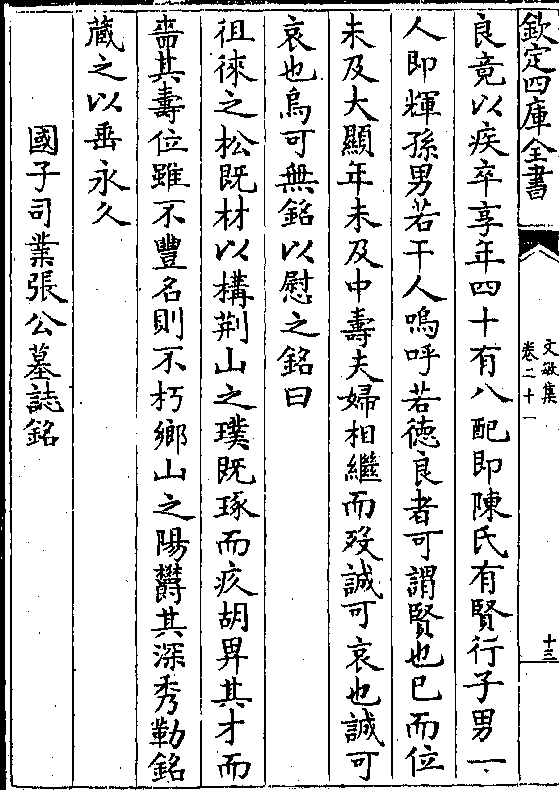 欽定四庫全書
文敏集
卷二十一
十三
良竟以疾卒享年四十有八配即陳氏有賢行子男一
人即輝孫男若干人嗚呼若德良者可謂賢也已而位
未及大顯年未及中壽夫婦相繼而歿誠可哀也誠可
哀也烏可無銘以慰之銘曰
徂徠之松既材以構荆山之璞既琢而疚胡畀其才而
嗇其壽位雖不豐名則不朽鄉山之陽欝其深秀勒銘
蔵之以垂永久
國子司業張公墓誌銘